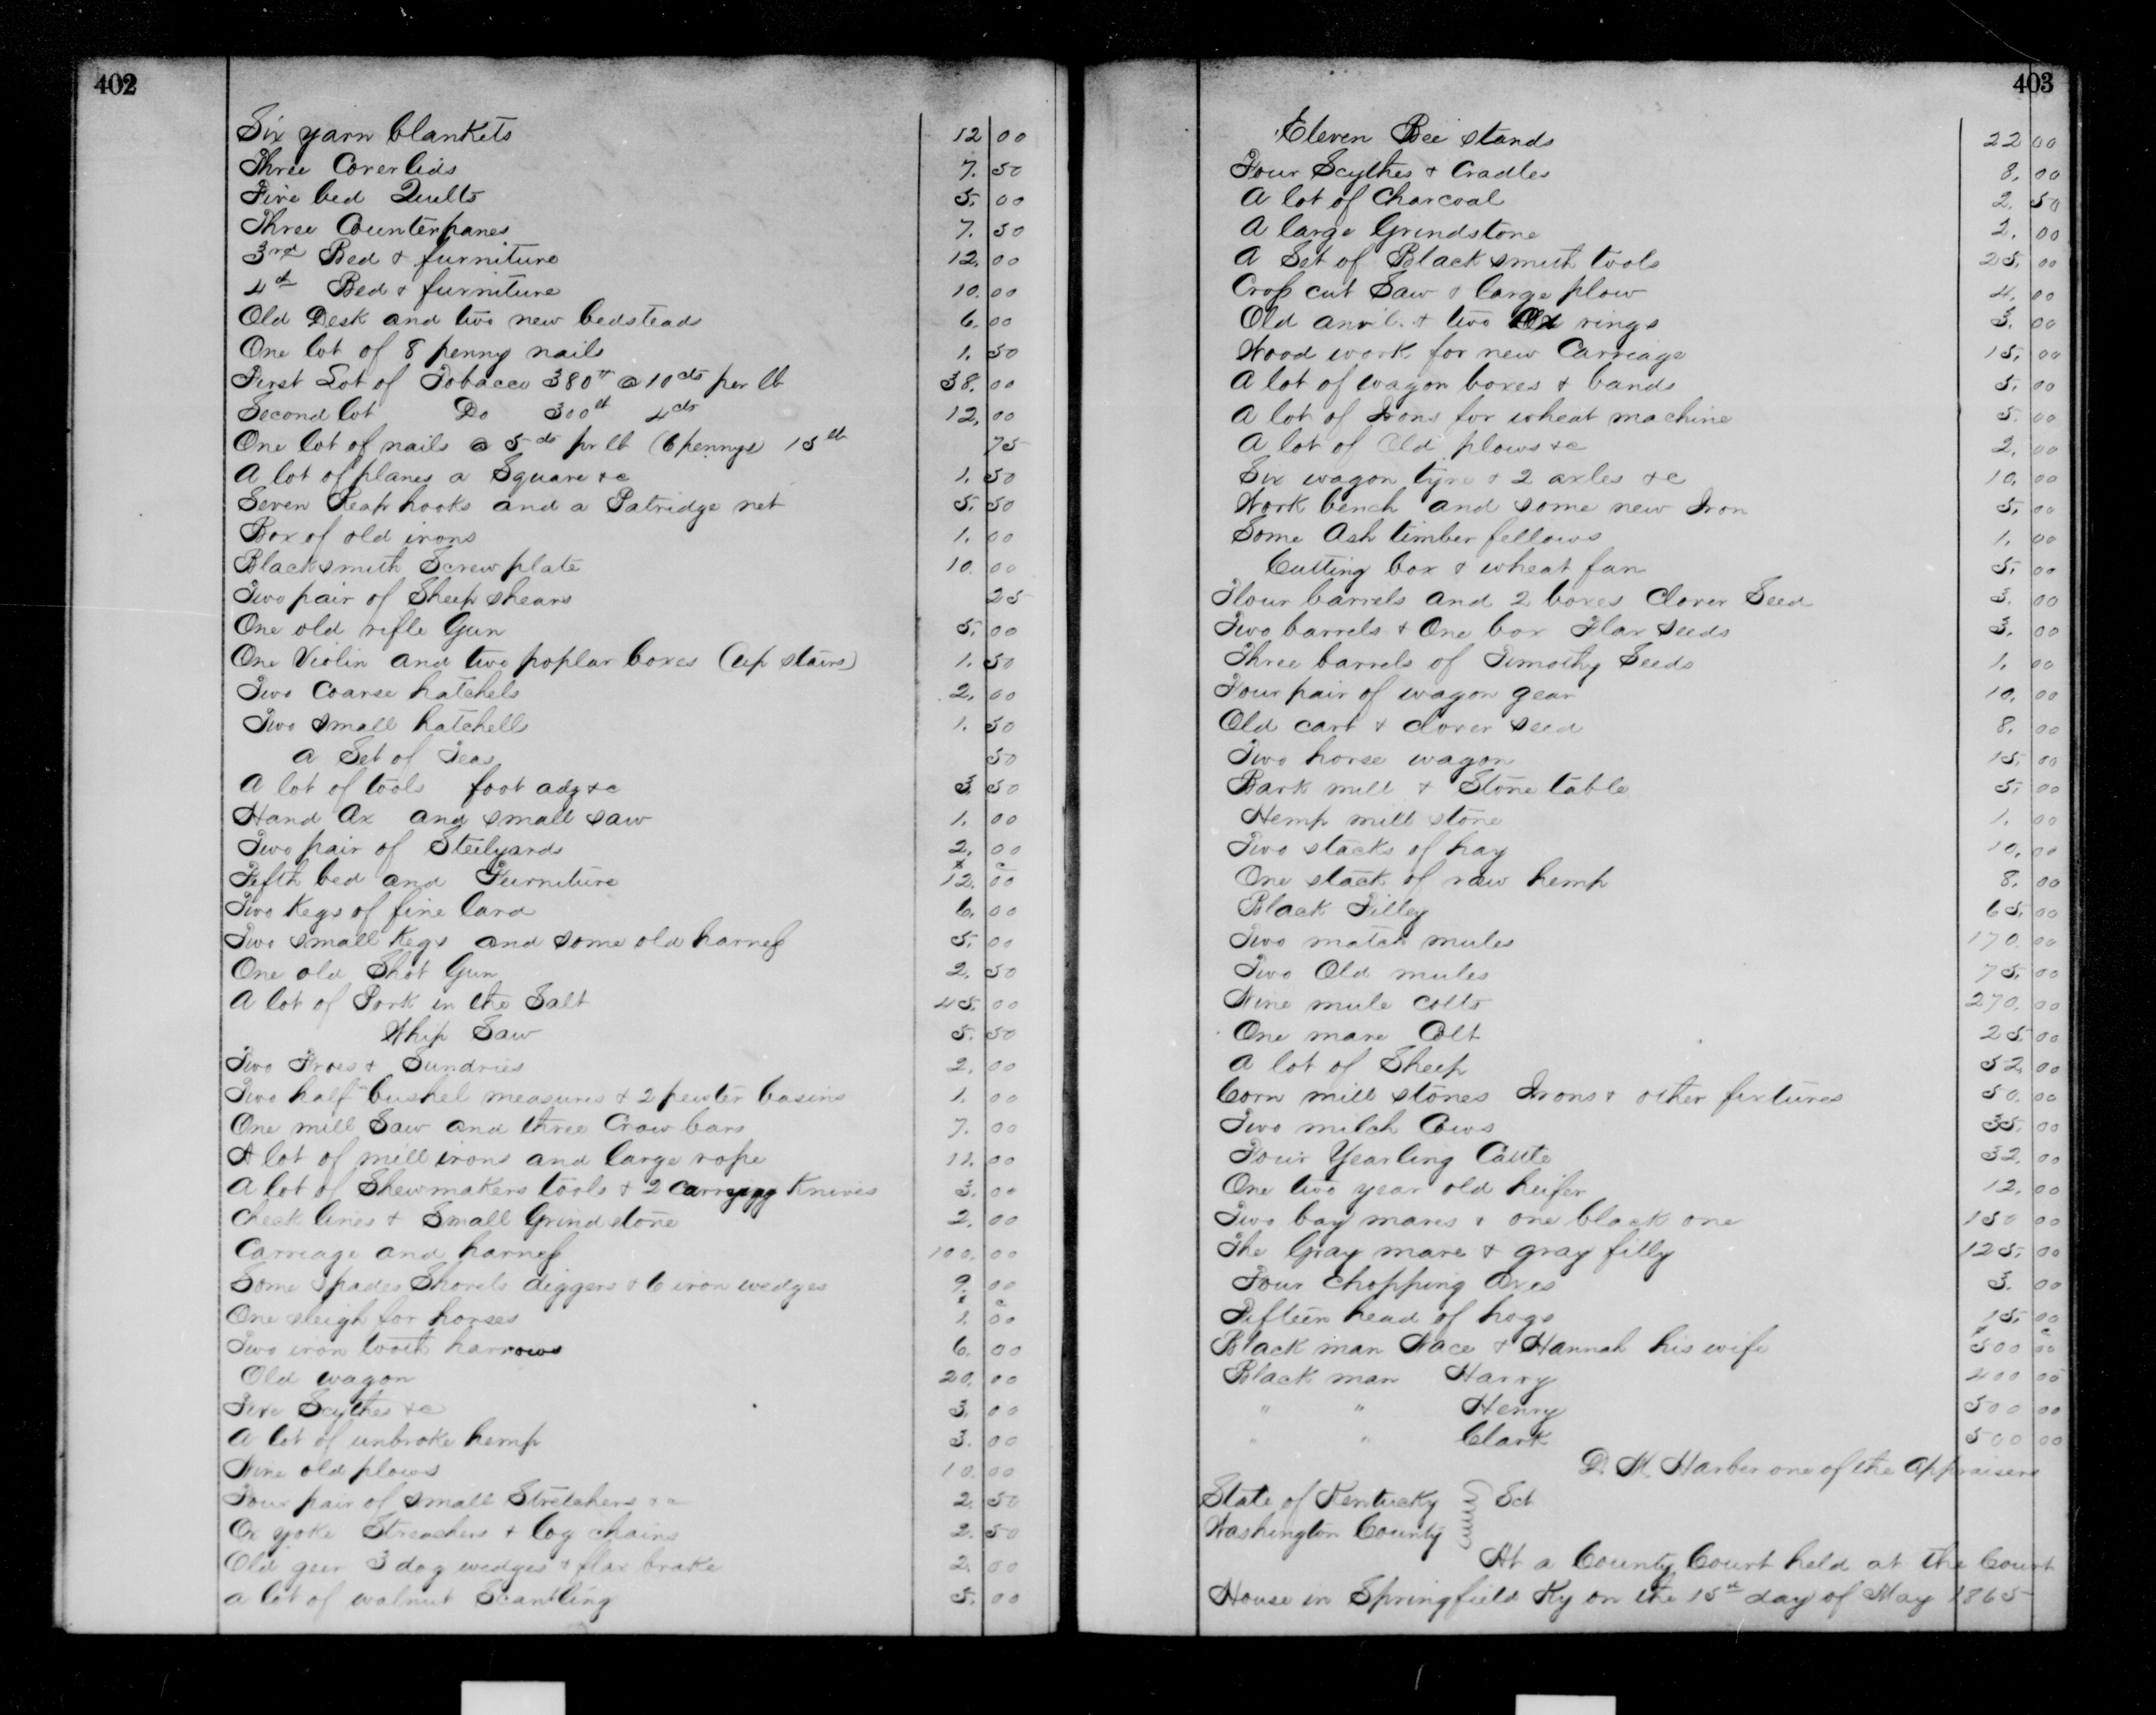 402
Six yarn blankets 12 00
Three Coverlids 7. 50
Five bed Quilts 5. 00
Three Counterpanes 7. 50
3rd Bed & furniture 12. 00
4th Bed & furniture 10. 00
Old Desk and two new bedsteads 6. 00
One lot of 8 penny nails 1. 50
First Lot of Tobacco 380 lb @ 10 cts per lb 38. 00
Second lot Do 300 lb 4 cts 12. 00
One lot of nails @ 5 cts pr lb (6 pennys) 15 lb 75
A lot of planes a Square &c 1. 50
Seven Reap hooks and a Patridge net 5. 50
Box of old irons 1. 00
Blacksmith Screw plate 10. 00
Two pair of Sheep shears 25
One old rifle Gun 5. 00
One Violin and two poplar boxes (up stairs) 1. 50
Two Coarse hatchels 2. 00
Two small hatchells 1. 50
a Set of Teas 50
A lot of tools foot adz &c 3. 50
Hand Ax and small saw 1. 00
Two pair of Steelyards 2. 00
Fifth bed and Furniture 12. 00
Two Kegs of fine lard 6. 00
Two small Kegs and some old harness 5. 00
One old Shot Gun 2. 50
A lot of Pork in the Salt 45. 00
Whip Saw 5. 50
Two Froes & Sundries 2. 00
Two half bushel measures & 2 pewter basins 1. 00
One mill Saw and three Crow bars 7. 00
A lot of mill irons and large rope 11. 00
A lot of Shewmakers tools & 2 Carrying Knives 3. 00
Check lines & Small Grind stone 2. 00
Carriage and harness 100. 00
Some Spades Shovels diggers & 6 iron wedges 9. 00
One sleigh for horses 1. 00
Two iron tooth harrows 6. 00
Old wagon 20. 00
Five Scythes &c 3. 00
A lot of unbroke hemp 3. 00
Nine old plows 10. 00
Four pair of small Stretchers &c 2. 50
Ox yoke Streachers & log chains 2. 50
Old geer 3 dog wedges & flax brake 2. 00
a lot of walnut Scantling 5. 00
403
Eleven Bee stands 22 00
Four Scythes & Cradles 8. 00
A lot of Charcoal 2. 50
A large Grindstone 2. 00
A Set of Black smith tools 25. 00
Cross cut Saw & large plow 4. 00
Old anvil & two rings 3. 00
Wood work for new Carriage 15. 00
A lot of wagon boxes & bands 5. 00
A lot of Irons for wheat machine 5. 00
A lot of Old plows &c 2. 00
Six wagon tyre & 2 axles &c 10. 00
Work bench and some new Iron 5. 00
Some Ash timber fellows 1. 00
Cutting box & wheat fan 5. 00
Flour barrels and 2 boxes Clover Seed 3. 00
Two barrels & One box Flax Seeds 3. 00
Three barrels of Timothy Seeds 1. 00
Four pair of wagon gear 10. 00
Old cart & clover seed 8. 00
Two horse wagon 15. 00
Bark mill & Stone table 5. 00
Hemp mill stone 1. 00
Two stacks of hay 10. 00
One stack of raw hemp 8. 00
Black Filley 65. 00
Two match mules 170. 00
Two Old mules 75. 00
Nine mule colts 270. 00
One mare Colt 25. 00
A lot of Sheep 52. 00
Corn mill stones Irons & other fixtures 50. 00
Two milch Cows 35. 00
Four Yearling Cattle 32. 00
One two year old heifer 12. 00
Two bay mares & one black one 150 00
The Gray mare & gray filly 125. 00
Four chopping Axes 3. 00
Fifteen head of hogs 15. 00
Black man Nace & Hannah his wife 500 00
Black man Harry 400 00
" " Henry 500 00
" " Clark 500 00
D. M. Harber one of the Appraisers
State of Kentucky Sct
Washington County
At a County Court held at the Court
House in Springfield Ky on the 15th day of May 1865